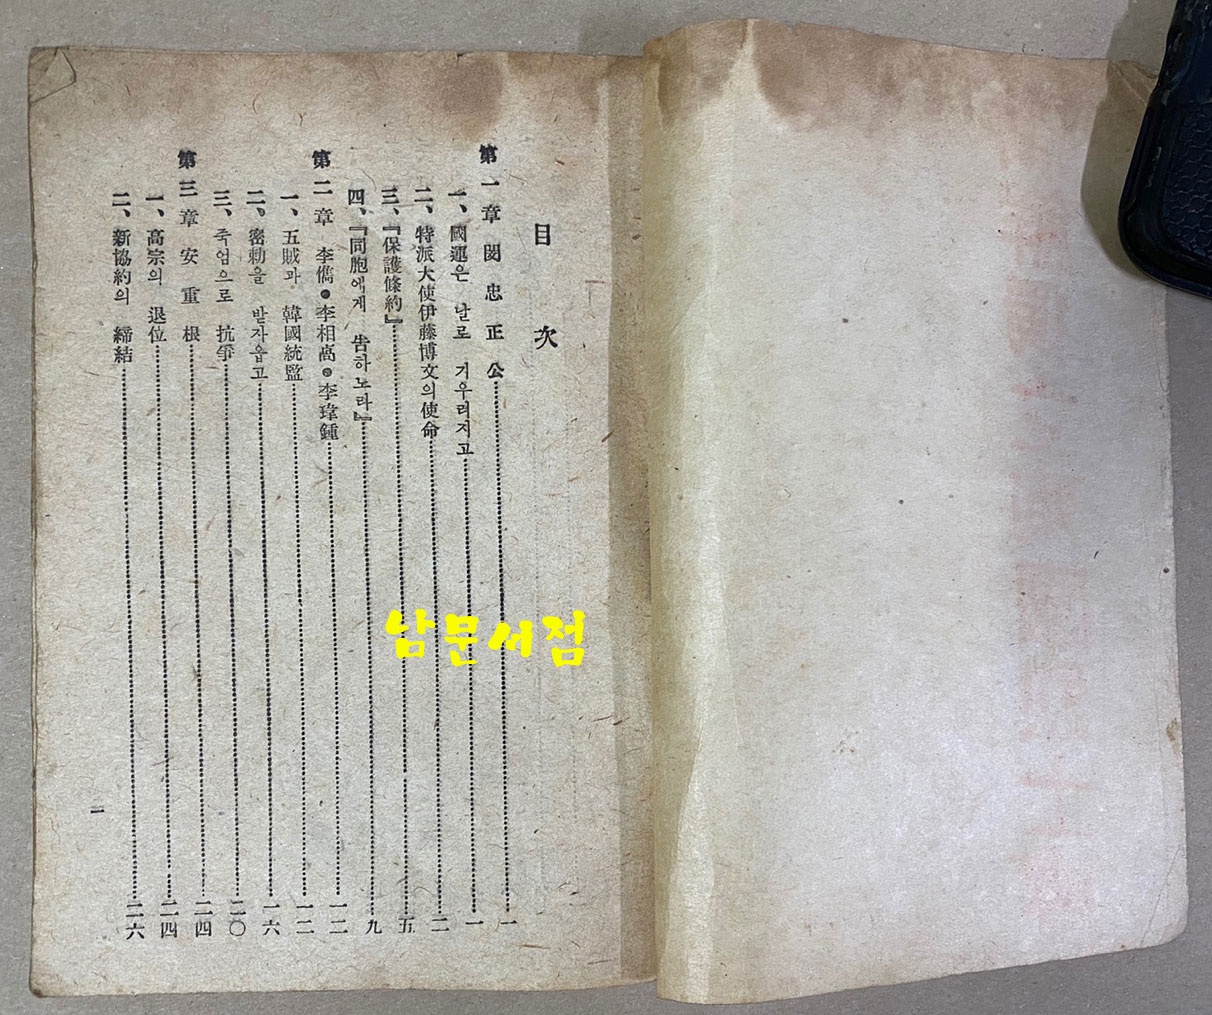 目次
第一章 閔忠正公……一
一、國運은 날로 기우러지고……一
二、特派大使伊藤博文의使命……二
三、『保護條約』……五
四、『同胞에게 告하노라』……九
第二章 李儁・李相卨・李瑋鍾……一二
一、五賊과 韓國統監……一二
二、密勅을 받자옵고……一六
三、죽엄으로 抗爭……二〇
第三章 安重根……二四
一、高宗의 退位……二四
二、新協約의 締結……二六
一
남문서점